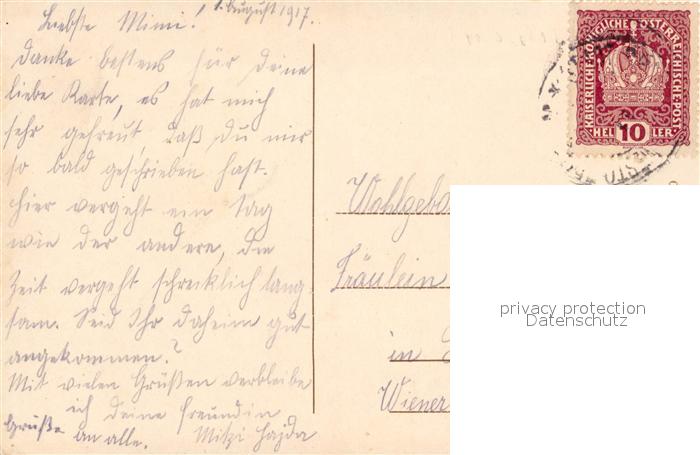 Liebste Mimi! 1. August 1917.
Danke bestens für deine
liebe Karte, es hat mich
sehr gefreut, daß du mir
so bald geschrieben hast.
Hier vergeht ein Tag
wie der andere, die
Zeit vergeht schrecklich lang-
sam. Seid Ihr daheim gut
angekommen?
Mit vielen Grüßen verbleibe
ich deine Freundin
Grüße an alle. Mitzi Hajda
KAISERLICHE KÖNIGLICHE ÖSTERREICHISCHE POST
HELLER
10
Wohlgebo
Fräulein
in
Wiener
privacy protection
Datenschutz